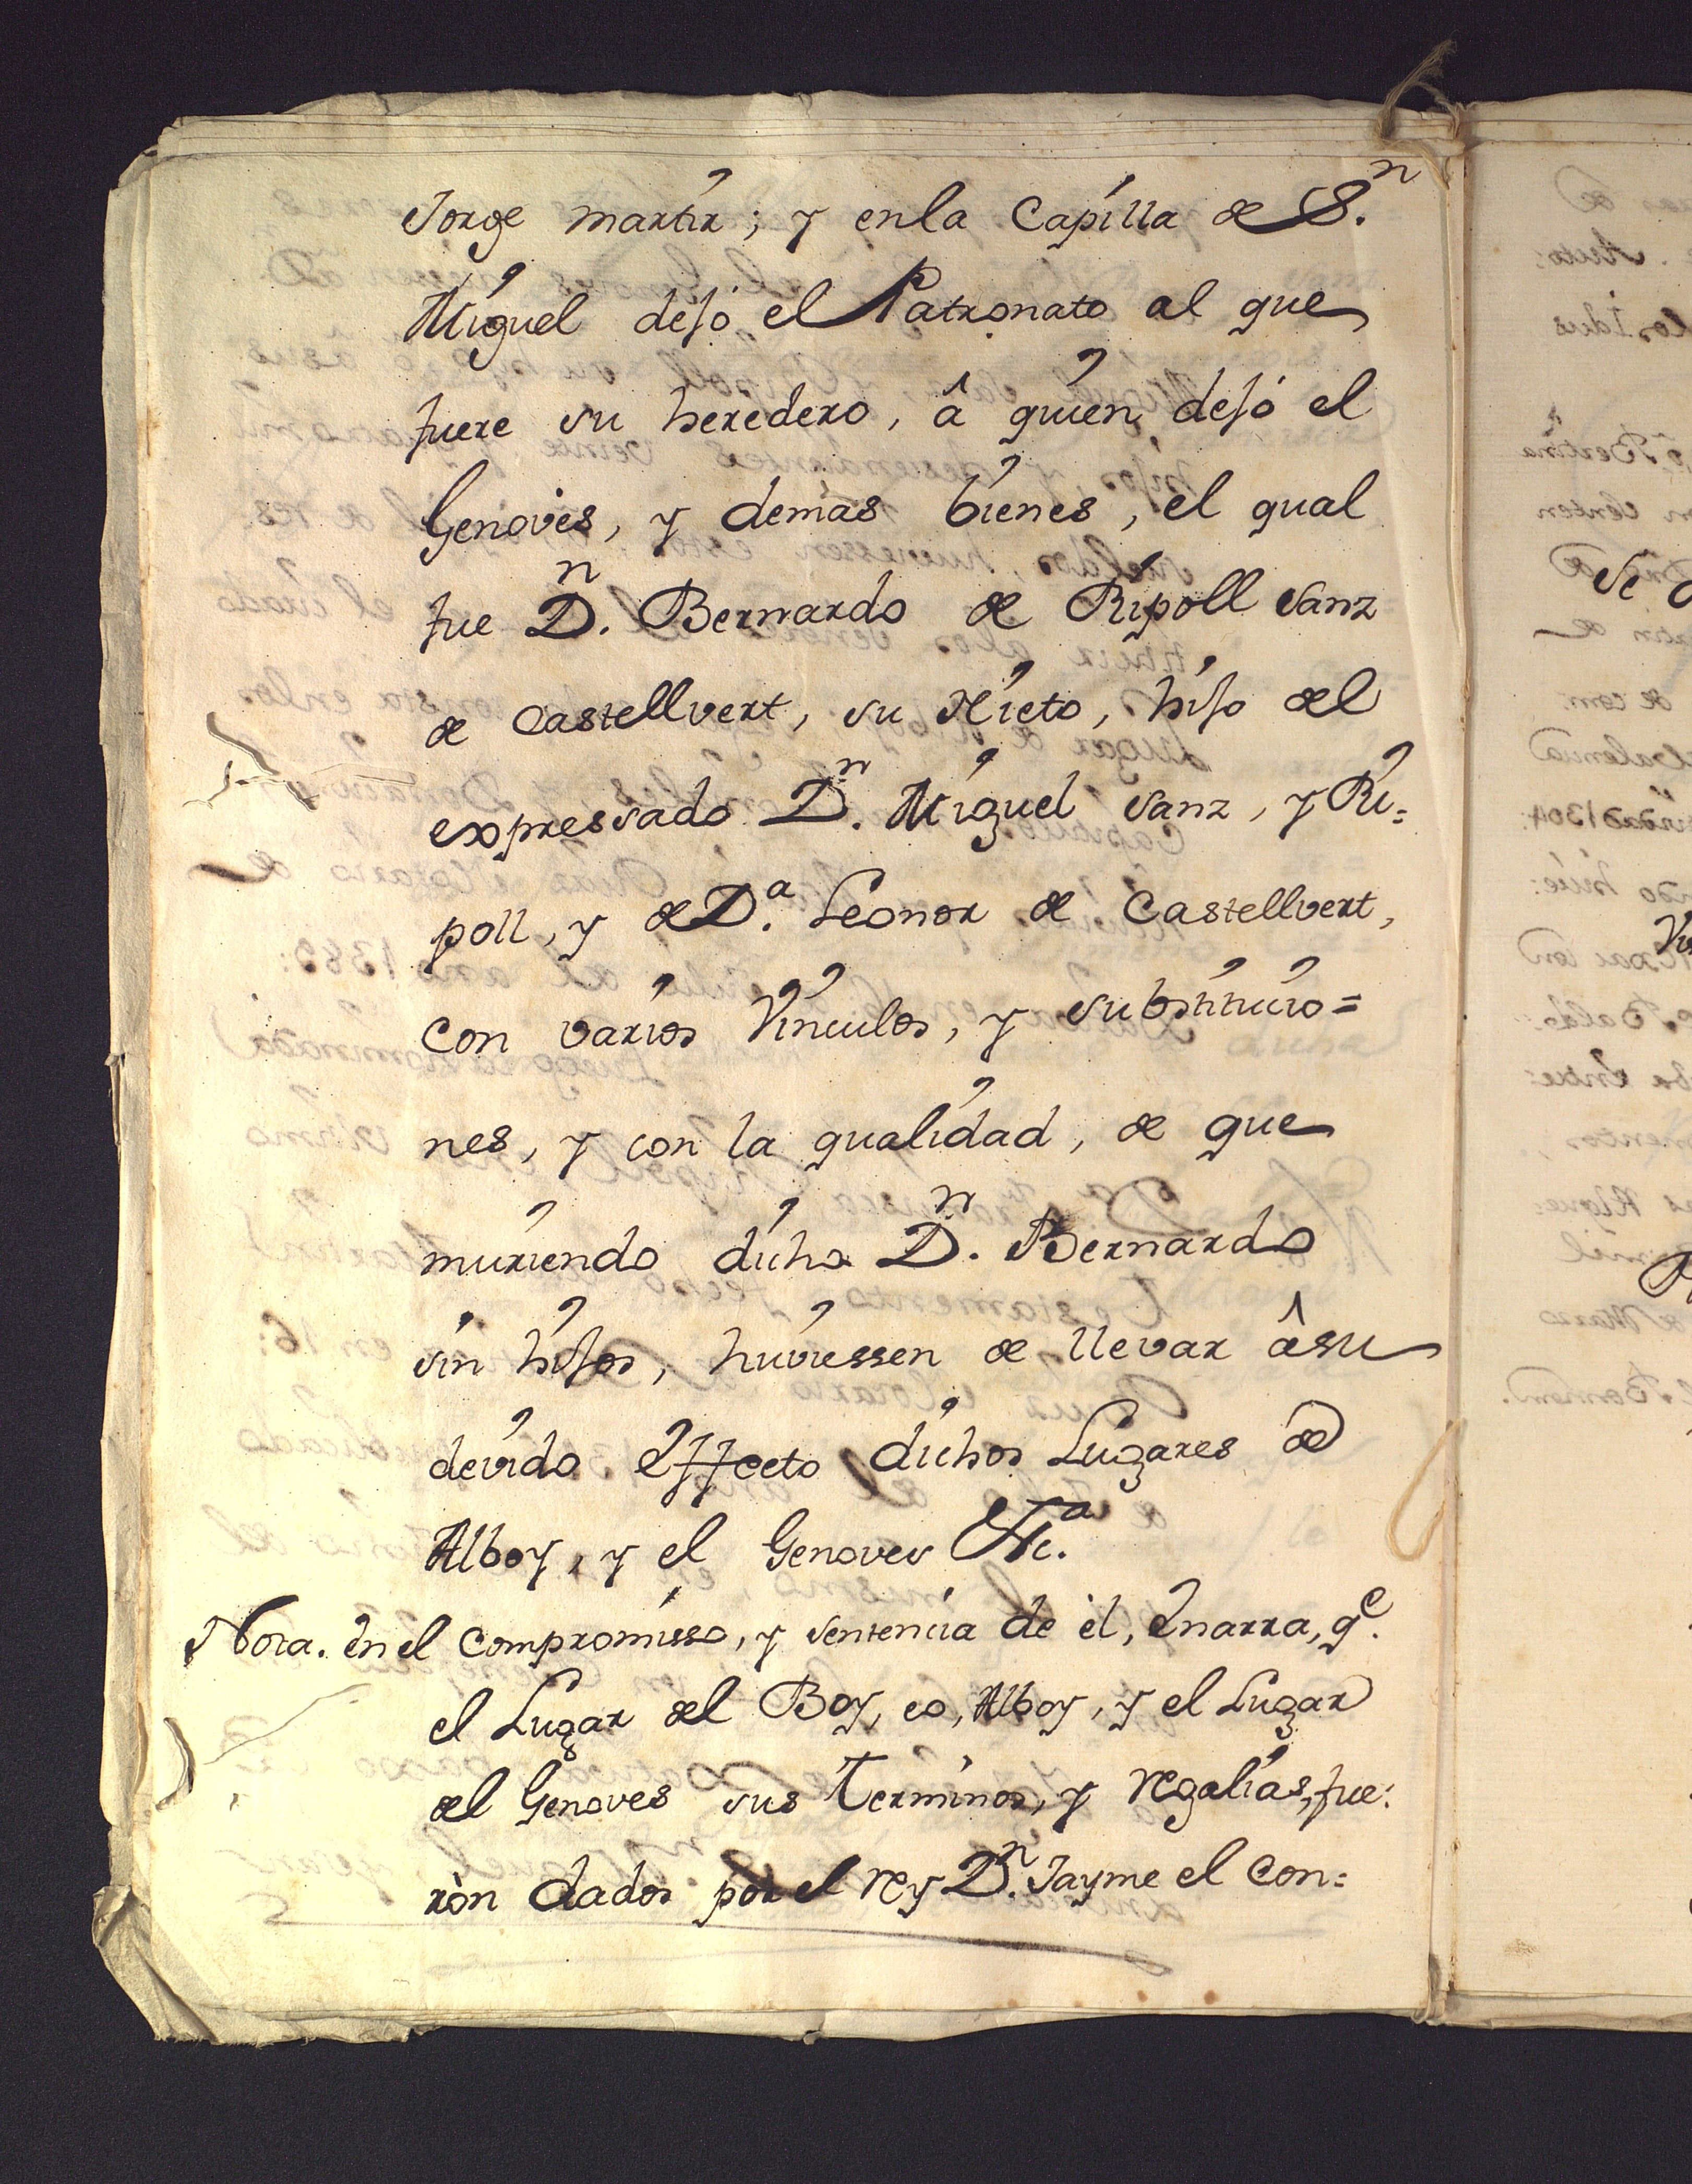 Jorge martir; y enla Capilla de S.n
Miguel dejó el Patronato al que
fuere su heredero, â quien dejó el
Genovés, y demás bienes, el qual
fue D.n Bernardo de Ripoll Sanz
de Castellvert, su Nieto, hijo del
expressado D.n Miguel Sanz, y Ri=
poll, y de D.a Leonor de Castellvert,
con varios Vinculos, y substitucio=
nes, y con la qualidad, de que
muriendo dicho D.n Bernardo
sin hijos, huviessen de llevar âsu
devido Effecto dichos Lugares de
Alboy, y el Genoves Etc.a
Nota. En el Compromisso, y sentencia de èl, Enarra, q.e
el Lugar del Boy, eo, Alboy, y el Lugar
del Genoves sus Terminos, y regalias, fue:
ròn dados por el rey D.n Jayme el Con=